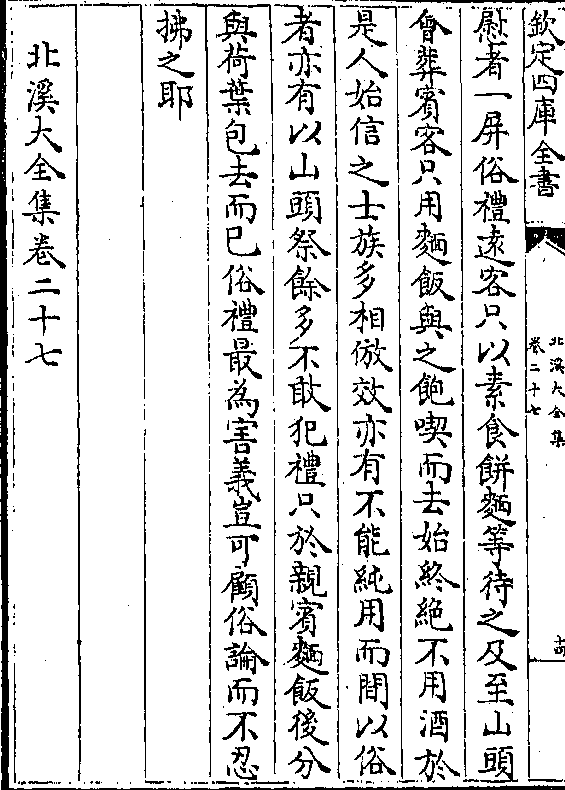 欽定四庫全書
北溪大全集
卷二十七
慰者一屏俗禮遠客只以素食餅麵等待之及至山頭
會葬賓客只用麵飯與之飽喫而去始終絶不用酒於
是人始信之士族多相倣效亦有不能純用而間以俗
者亦有以山頭祭餘多不敢犯禮只於親賓麵飯後分
與荷葉包去而已俗禮最為害義豈可顧俗論而不忍
拂之耶
北溪大全集卷二十七